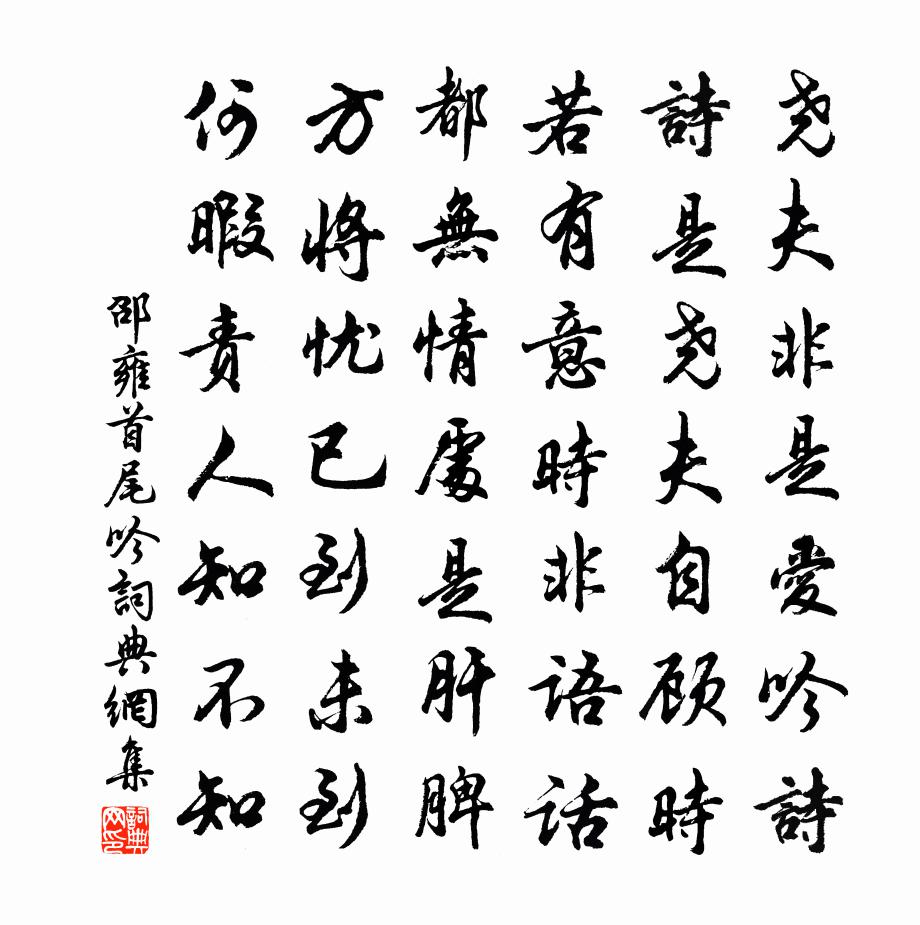 尧夫非是愛吟詩
詩是尧夫自顾時
若有意時非語話
都無情處是肝脾
方將忧已到未到
何暇责人知不知
邵雍首尾吟詞典網集
詞典网印